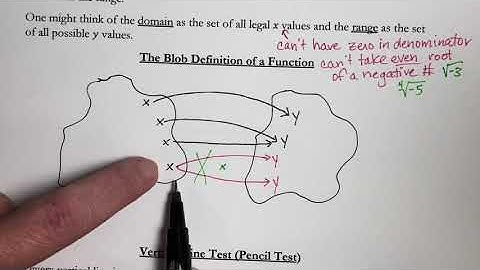 the range.
One might think of the domain as the set of all legal x values and the range as the set
of all possible y values.
can't have zero in denominator
The Blob Definition of a Function
can't take even root
of a negative # √-3
∜-5
x
y
x
y
x
x
y
x
y
Line Test (Pencil Test)